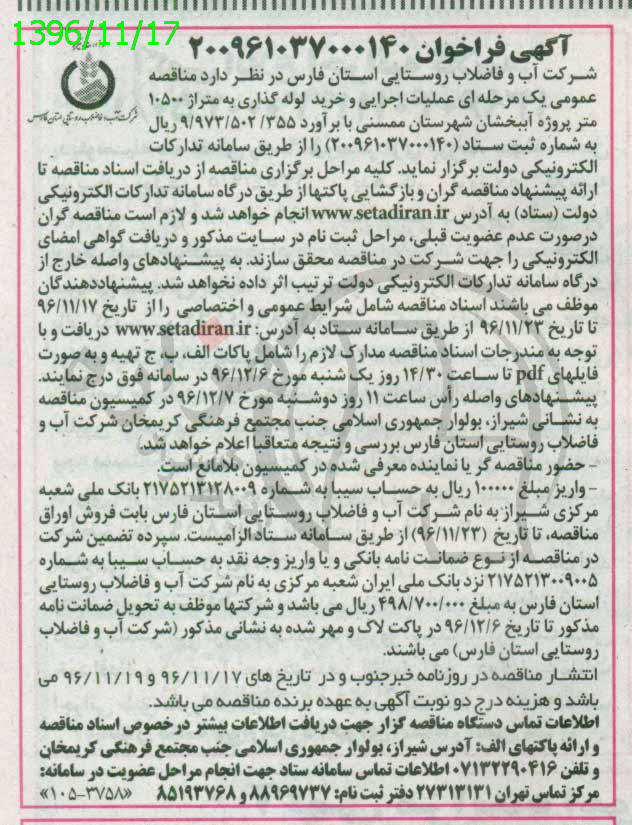 1396/11/17
آگهی فراخوان ۲۰۰۹۶۱۰۳۷۰۰۰۱۴۰
شرکت آب و فاضلاب روستایی استان فارس در نظر دارد مناقصه
عمومی یک مرحله ای عملیات اجرایی و خرید لوله گذاری به متراژ ۱۰۵۰۰
متر پروژه آببخشان شهرستان ممسنی با برآورد ۹/۹۷۳/۵۰۲/۳۵۵ ریال
به شماره ثبت ستاد (۲۰۰۹۶۱۰۳۷۰۰۰۱۴۰) را از طریق سامانه تدارکات
الکترونیکی دولت برگزار نماید. کلیه مراحل برگزاری مناقصه از دریافت اسناد مناقصه تا
ارائه پیشنهاد مناقصه گران و بازگشایی پاکتها از طریق درگاه سامانه تدارکات الکترونیکی
دولت (ستاد) به آدرس www.setadiran.ir انجام خواهد شد و لازم است مناقصه گران
درصورت عدم عضویت قبلی، مراحل ثبت نام در سایت مذکور و دریافت گواهی امضای
الکترونیکی را جهت شرکت در مناقصه محقق سازند. به پیشنهادهای واصله خارج از
درگاه سامانه تدارکات الکترونیکی دولت ترتیب اثر داده نخواهد شد. پیشنهاددهندگان
موظف می باشند اسناد مناقصه شامل شرایط عمومی و اختصاصی را از تاریخ ۹۶/۱۱/۱۷
تا تاریخ ۹۶/۱۱/۲۳ از طریق سامانه ستاد به آدرس: www.setadiran.ir دریافت و با
توجه به مندرجات اسناد مناقصه مدارک لازم را شامل پاکات الف، ب، ج تهیه و به صورت
فایلهای pdf تا ساعت ۱۴/۳۰ روز یک شنبه مورخ ۹۶/۱۲/۶ در سامانه فوق درج نمایند.
پیشنهادهای واصله رأس ساعت ۱۱ روز دوشنبه مورخ ۹۶/۱۲/۷ در کمیسیون مناقصه
به نشانی شیراز، بولوار جمهوری اسلامی جنب مجتمع فرهنگی کریمخان شرکت آب و
فاضلاب روستایی استان فارس بررسی و نتیجه متعاقبا اعلام خواهد شد.
- حضور مناقصه گر یا نماینده معرفی شده در کمیسیون بلامانع است.
- واریز مبلغ ۱۰۰۰۰۰ ریال به حساب سیبا به شماره ۲۱۷۵۲۱۳۱۲۸۰۰۹ بانک ملی شعبه
مرکزی شیراز به نام شرکت آب و فاضلاب روستایی استان فارس بابت فروش اوراق
مناقصه، تا تاریخ (۹۶/۱۱/۲۳) از طریق سامانه ستاد الزامیست. سپرده تضمین شرکت
در مناقصه از نوع ضمانت نامه بانکی و یا واریز وجه نقد به حساب سیبا به شماره
۲۱۷۵۲۱۳۰۰۹۰۰۵ نزد بانک ملی ایران شعبه مرکزی به نام شرکت آب و فاضلاب روستایی
استان فارس به مبلغ ۴۹۸/۷۰۰/۰۰۰ ریال می باشد و شرکتها موظف به تحویل ضمانت نامه
مذکور تا تاریخ ۹۶/۱۲/۶ در پاکت لاک و مهر شده به نشانی مذکور (شرکت آب و فاضلاب
روستایی استان فارس) می باشند.
انتشار مناقصه در روزنامه خبرجنوب و در تاریخ های ۹۶/۱۱/۱۷ و ۹۶/۱۱/۱۹ می
باشد و هزینه درج دو نوبت آگهی به عهده برنده مناقصه می باشد.
اطلاعات تماس دستگاه مناقصه گزار جهت دریافت اطلاعات بیشتر درخصوص اسناد مناقصه
و ارائه پاکتهای الف: آدرس شیراز، بولوار جمهوری اسلامی جنب مجتمع فرهنگی کریمخان
و تلفن ۰۷۱۳۲۲۹۰۴۱۶ اطلاعات تماس سامانه ستاد جهت انجام مراحل عضویت در سامانه:
مرکز تماس تهران ۲۷۳۱۳۱۳۱ دفتر ثبت نام: ۸۸۹۶۹۷۳۷ و ۸۵۱۹۳۷۶۸ «۱۰۵-۳۷۵۸»